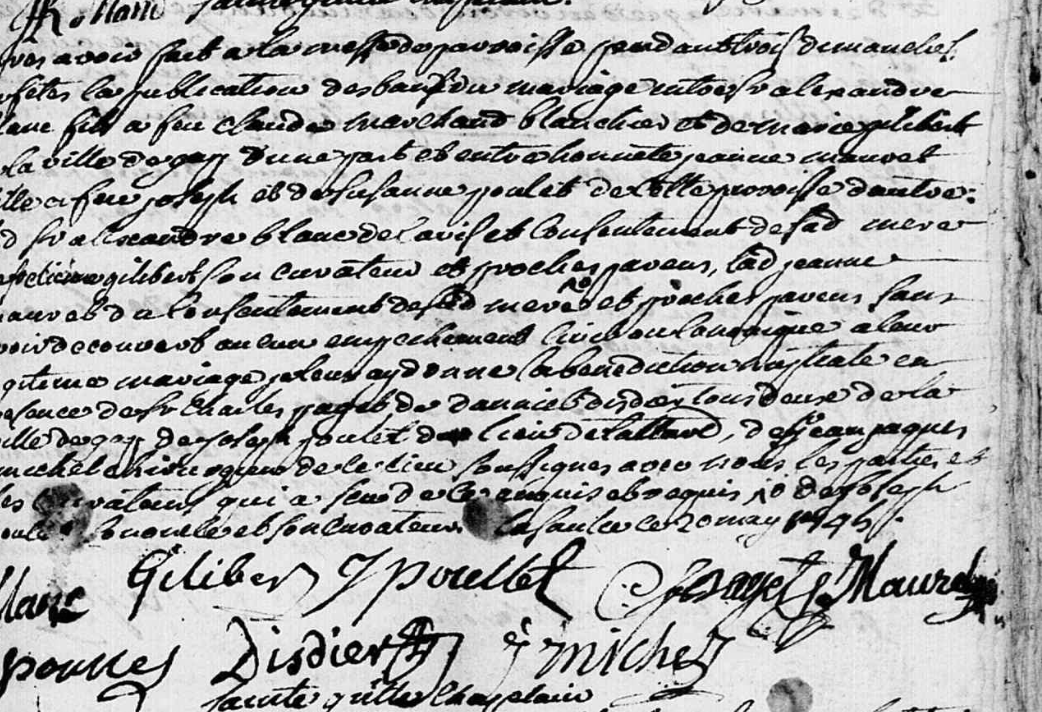 avoir fait a la messe de paroisse pendant trois dimanches
fetes la publication des bans du mariage entre sr alexandre
blanc fils a feu claude marchand blanchier et de marie gilibert
la ville de gap d'une part et entre honnete jeanne mauret
fille a feu joseph et de susanne poulet de cette paroisse d'autre
d sr alexandre blanc de l'avis et consentement de sad mere
gilibert son curateur et proches parens, lad jeanne
mauret du consentement de sad mere et proches parens sans
avoir decouvert aucun empechement civil ou canonique a leur
legitime mariage je leur ay donne la benediction nuptiale en
presence de sr charles paget de daniel disdier tous deux de la
ville de gap de joseph poulet du lieu de lattard, de sr jean jaques
michel chirurgien de ce lieu soussignes avec nous les parties et
les curateurs qui a seu de ce enquis et requis de joseph
poulet et son curateur lasaulce ce 20 may
blanc Giliber J poullet Paget J Mauret
poulles Disdier michel
sainte gille Chapelain